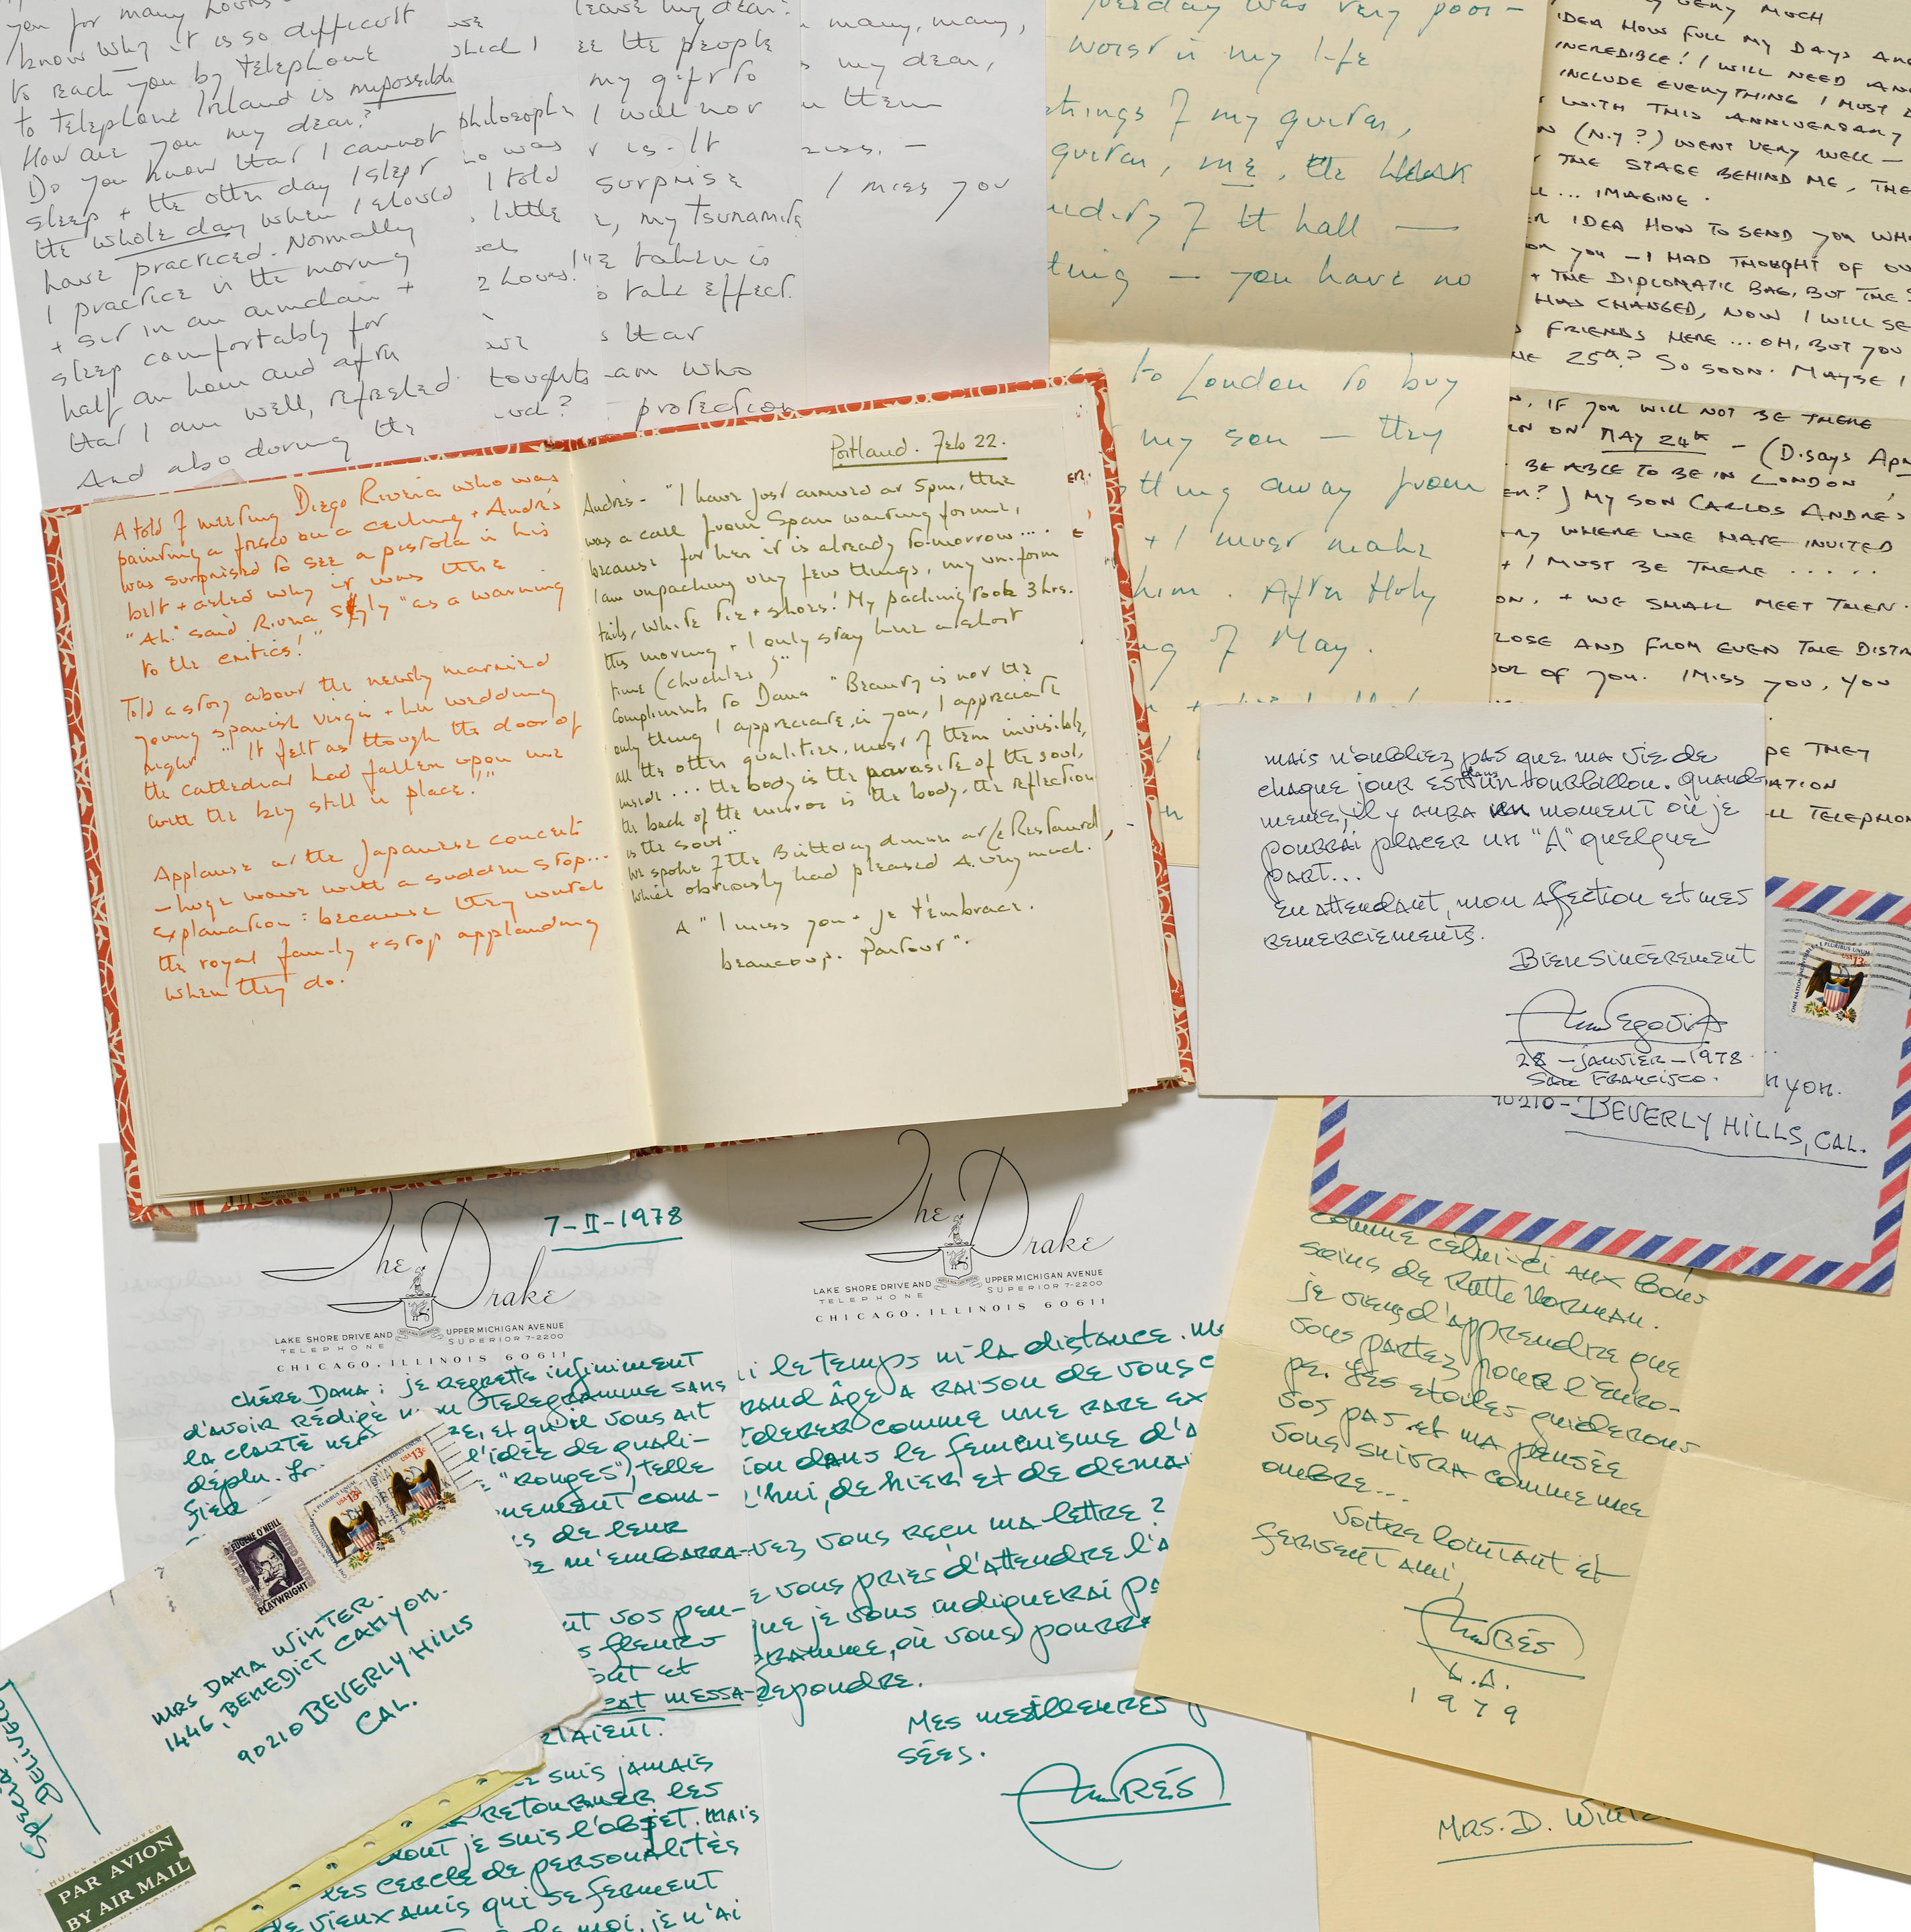 you for many hours
know why it is so difficult
to reach you by telephone
to telephone Ireland is impossible
How are you my dear?
Do you know that I cannot
sleep + the other day I slept
the whole day when I should
have practiced. Normally
I practice in the morning
+ sit in an armchair +
sleep comfortably for
half an hour and after
that I am well, refreshed
And also during the
philosoph
was
I told
little
hours!"
toughts
leave my dear?
the people
my gift to
I will not
is - It
surprise
, my tsunamis
taken is
take effect.
that
am who
protection
many, many,
my dear,
them
I miss you
yesterday was very poor -
worst in my life
things of my guitar,
guitar, me, the
of th hall —
thing — you have no
to London to buy
my son — they
thing away from
+ I must make
him. After Holy
of May.
VERY MUCH
IDEA HOW FULL MY DAYS ARE
INCREDIBLE! I WILL NEED AN
INCLUDE EVERYTHING I MUST D
WITH THIS ANNIVERSARY
(N.Y?) WENT VERY WELL —
THE STAGE BEHIND ME, THE
... IMAGINE.
IDEA HOW TO SEND YOU WH
YOU — I HAD THOUGHT OF OU
+ THE DIPLOMATIC BAG, BUT THE
HAS CHANGED, NOW I WILL SE
FRIENDS HERE ... OH, BUT YOU
25th? SO SOON. MAYBE I
, IF YOU WILL NOT BE THERE
ON MAY 24th - (D. says Apr
BE ABLE TO BE IN LONDON,
?) MY SON CARLOS ANDRES
WHERE WE HAVE INVITED
+ I MUST BE THERE .....
, + WE SHALL MEET THEN.
AND FROM EVEN THE DISTA
OF YOU. I MISS YOU, YOU
THEY
TELEPHON
A told of meeting Diego Rivera who was
painting a fresco on a ceiling + Andrés
was surprised to see a pistola in his
belt + asked why it was there
"Ah." said Rivera slyly "as a warning
to the critics!"
Told a story about the newly married
young spanish virgin + her wedding
night "It felt as though the door of
the cathedral had fallen upon me
with the key still in place!"
Applause at the Japanese concert
- huge wave with a sudden stop...
explanation: because they watch
the royal family + stop applauding
when they do.
Portland. Feb 22.
Andrés - "I have just arrived at 5pm, there
was a call from Spain waiting for me,
because for her it is already tomorrow....
I am unpacking very few things, my uniform
tails, white tie + shoes! My packing took 3 hrs.
this morning + I only stay here a short
time (chuckles)"
Compliments to Dana "Beauty is not the
only thing I appreciate in you, I appreciate
all the other qualities, most of them invisible,
inside ... the body is the parasite of the soul,
the back of the mirror is the body. the reflection
is the soul"
We spoke of the Birthday dinner at Le Restaurant,
which obviously had pleased A. very much.
A "I miss you + je t'embrace.
beaucoup. Partout".
mais n'oubliez pas que ma vie de
chaque jour est dans un tourbillon. Quand
meme, il y aura un moment où je
pourrai placer un "A" quelque
part...
En attendant, mon affection et mes
remerciements.
Bien sincèrement
Segovia
28 - janvier - 1978
San Francisco.
nyon.
90210 - BEVERLY HILLS, CAL.
E PLURIBUS UNUM
ONE NATION INDIVISIBLE
USA 13c
The Drake
LAKE SHORE DRIVE AND UPPER MICHIGAN AVENUE
TELEPHONE SUPERIOR 7-2200
CHICAGO, ILLINOIS 60611
7-II-1978
Chère Dana: je regrette infiniment
d'avoir rédigé mon télégramme sans
la clarté, et qu'il vous ait
déplu. l'idée de quali-
fier "rouges"), telle
de leur
m'embarra-
vos pen-
fleurs
et
messa-
suis jamais
retourner les
dont je suis l'objet. Mais
les cercle de personalités
de vieux amis qui se ferment
moi, je n'ai
The Drake
LAKE SHORE DRIVE AND UPPER MICHIGAN AVENUE
TELEPHONE SUPERIOR 7-2200
CHICAGO, ILLINOIS 60611
le temps ni la distance.
âge a raison de vous
comme une rare ex
dans le feminisme d'a
hui, de hier et de demai
vez vous reçu ma lettre?
vous pries d'attendre l'
que je vous indiquerai pa
, où vous pourre
repondre.
Mes meilleures
sées.
Andrés
comme celui-ci aux bons
soins de Ruth Norman.
je viens d'apprendre que
vous partez pour l'Euro-
pe. Les etoiles guideront
vos pas et ma pensée
vous suivra comme une
ombre...
Votre lointant et
fervent ami,
Andrés
L.A.
1979
MRS. D. Winte
EUGENE O'NEILL
PLAYWRIGHT
USA 13c
MRS DANA WINTER.
1446, BENEDICT CANYON.
90210 BEVERLY HILLS
CAL.
Special Delivery
PAR AVION
BY AIR MAIL